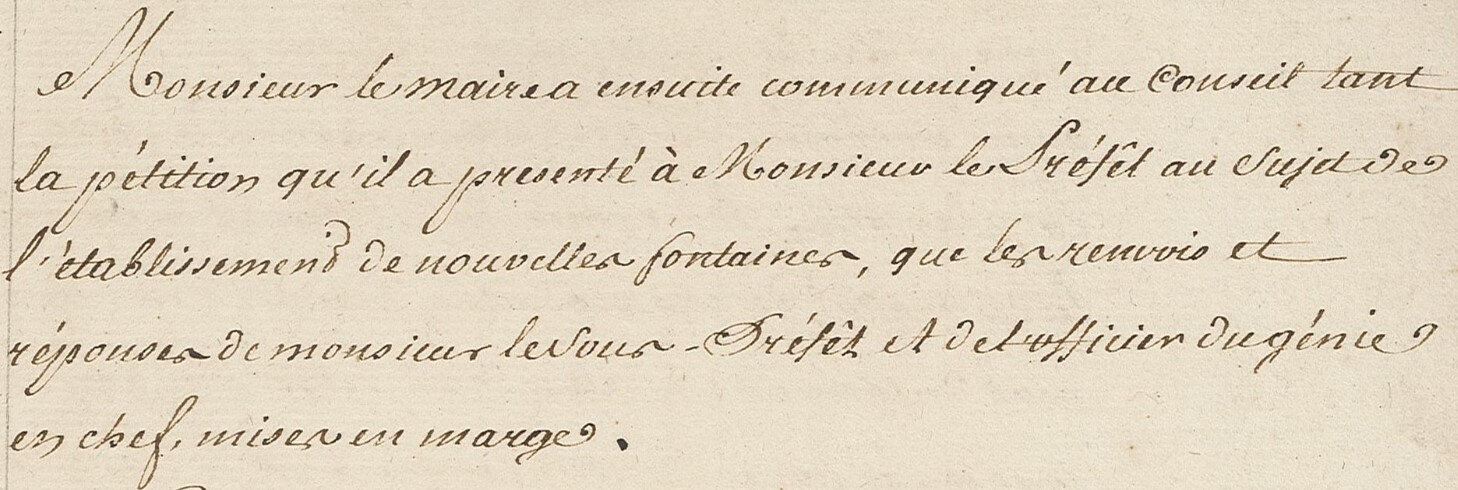 Monsieur le maire a ensuite communiqué au Conseil tant
la pétition qu'il a presenté à Monsieur le Préfêt au Sujet de
l'établissement de nouvelles fontaines, que les renvois et
réponses de monsieur le Sous-Préfêt et de l'officier du génie
en chef, mises en marge.